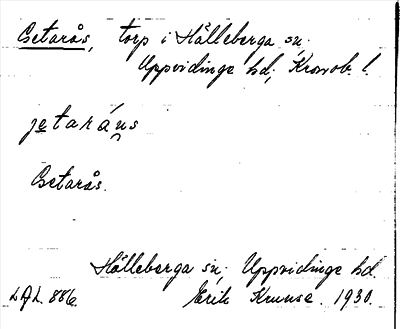 Getarås, torp i Hälleberga sn;
Uppvidinge hd, Kronob. l.
jetaráns
Getarås.
Hälleberga sn, Uppvidinge hd.
LAL. 886. Erik Kruuse. 1930.